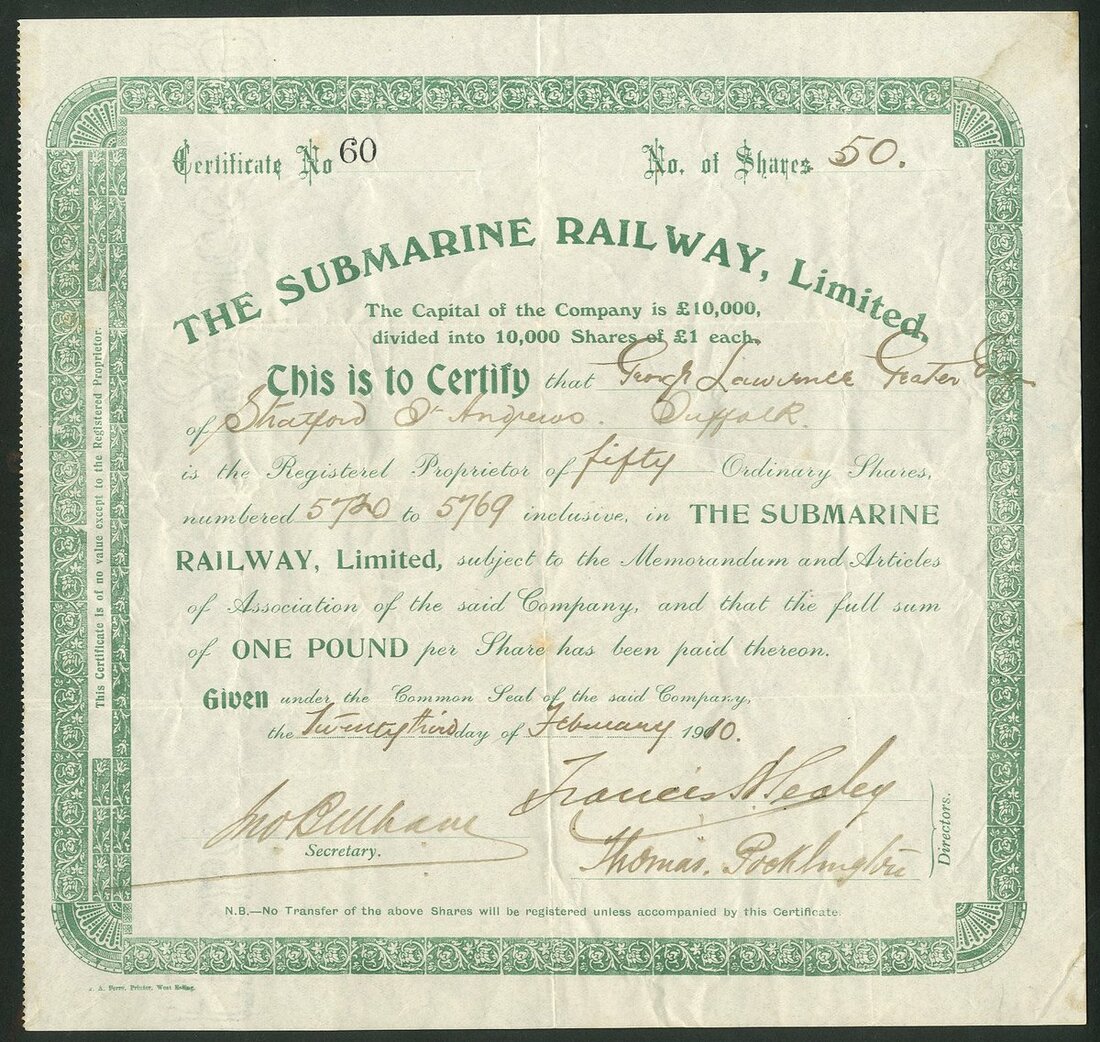 Certificate No 60
No. of Shares 50.
THE SUBMARINE RAILWAY, Limited.
The Capital of the Company is £10,000,
divided into 10,000 Shares of £1 each.
This is to Certify that Lawrence
of Stratford St Andrews. Suffolk.
is the Registered Proprietor of fifty Ordinary Shares,
numbered 5720 to 5769 inclusive, in THE SUBMARINE
RAILWAY, Limited, subject to the Memorandum and Articles
of Association of the said Company, and that the full sum
of ONE POUND per Share has been paid thereon.
Given under the Common Seal of the said Company,
the Twenty third day of February 1910.
Francis
Thomas. Pocklington
Secretary.
Directors.
N.B.—No Transfer of the above Shares will be registered unless accompanied by this Certificate.
This Certificate is of no value except to the Registered Proprietor.
A. Perry, Printer, West Ealing.